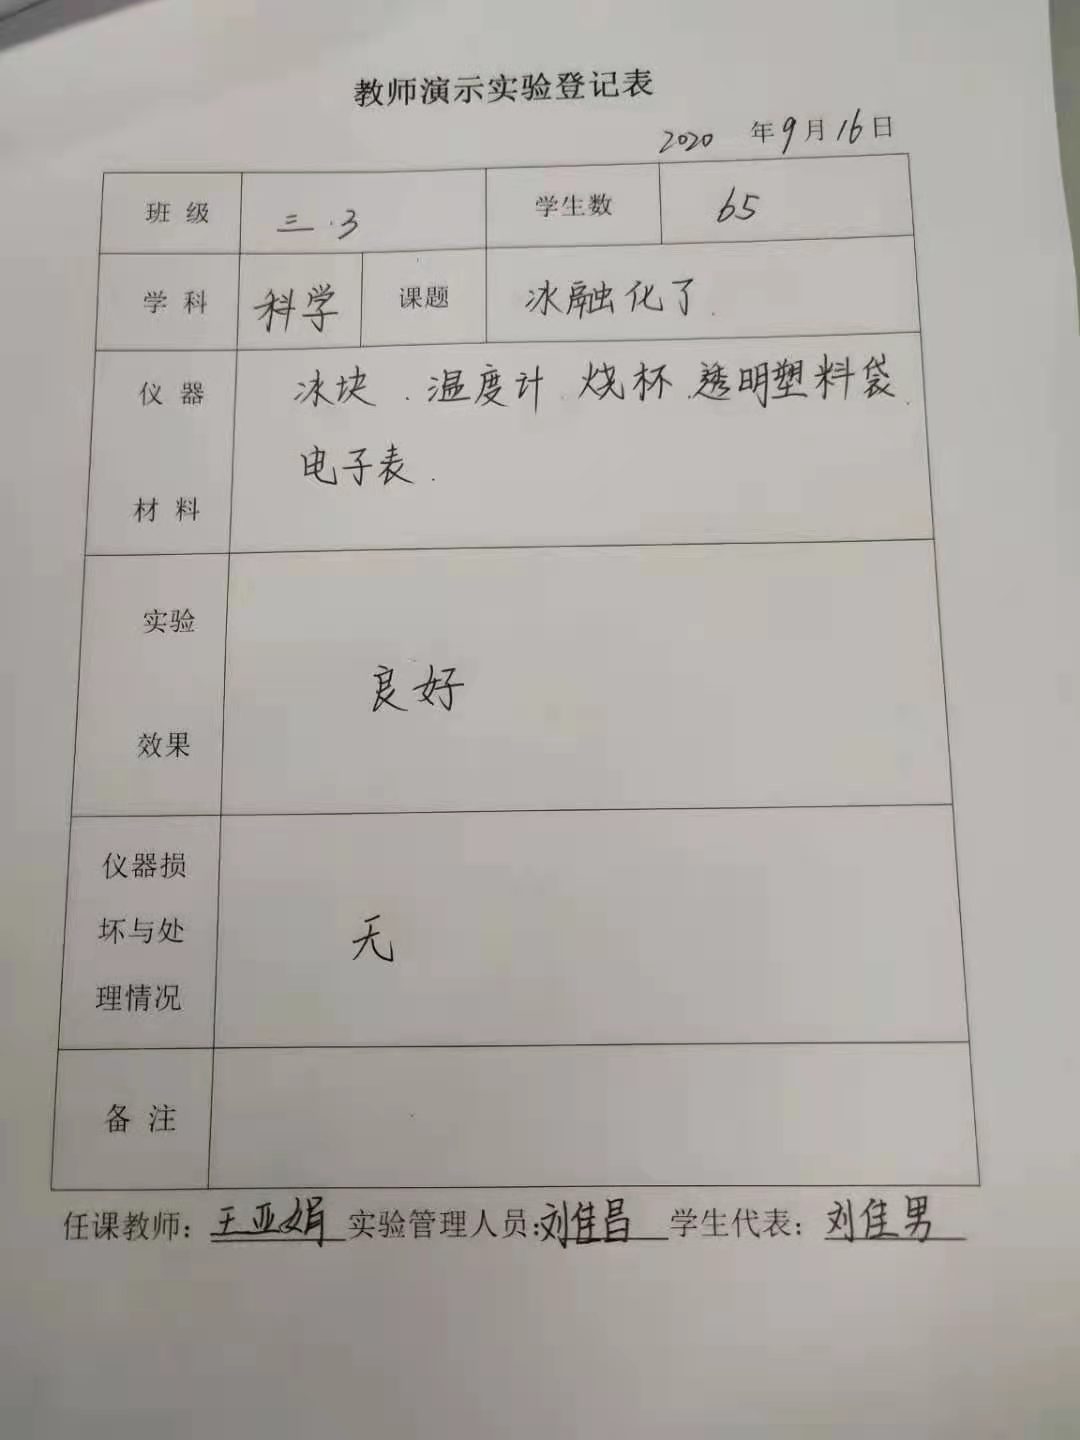 教师演示实验登记表
2020 年 9 月 16 日
班 级 三.3 学生数 65
学 科 科学 课题 冰融化了.
仪 器 冰块 . 温度计 . 烧杯 . 透明塑料袋 .
电子表 .
材 料
实验
良好
效果
仪器损
坏与处 无
理情况
备 注
任课教师: 王亚娟 实验管理人员: 刘佳昌 学生代表: 刘佳男